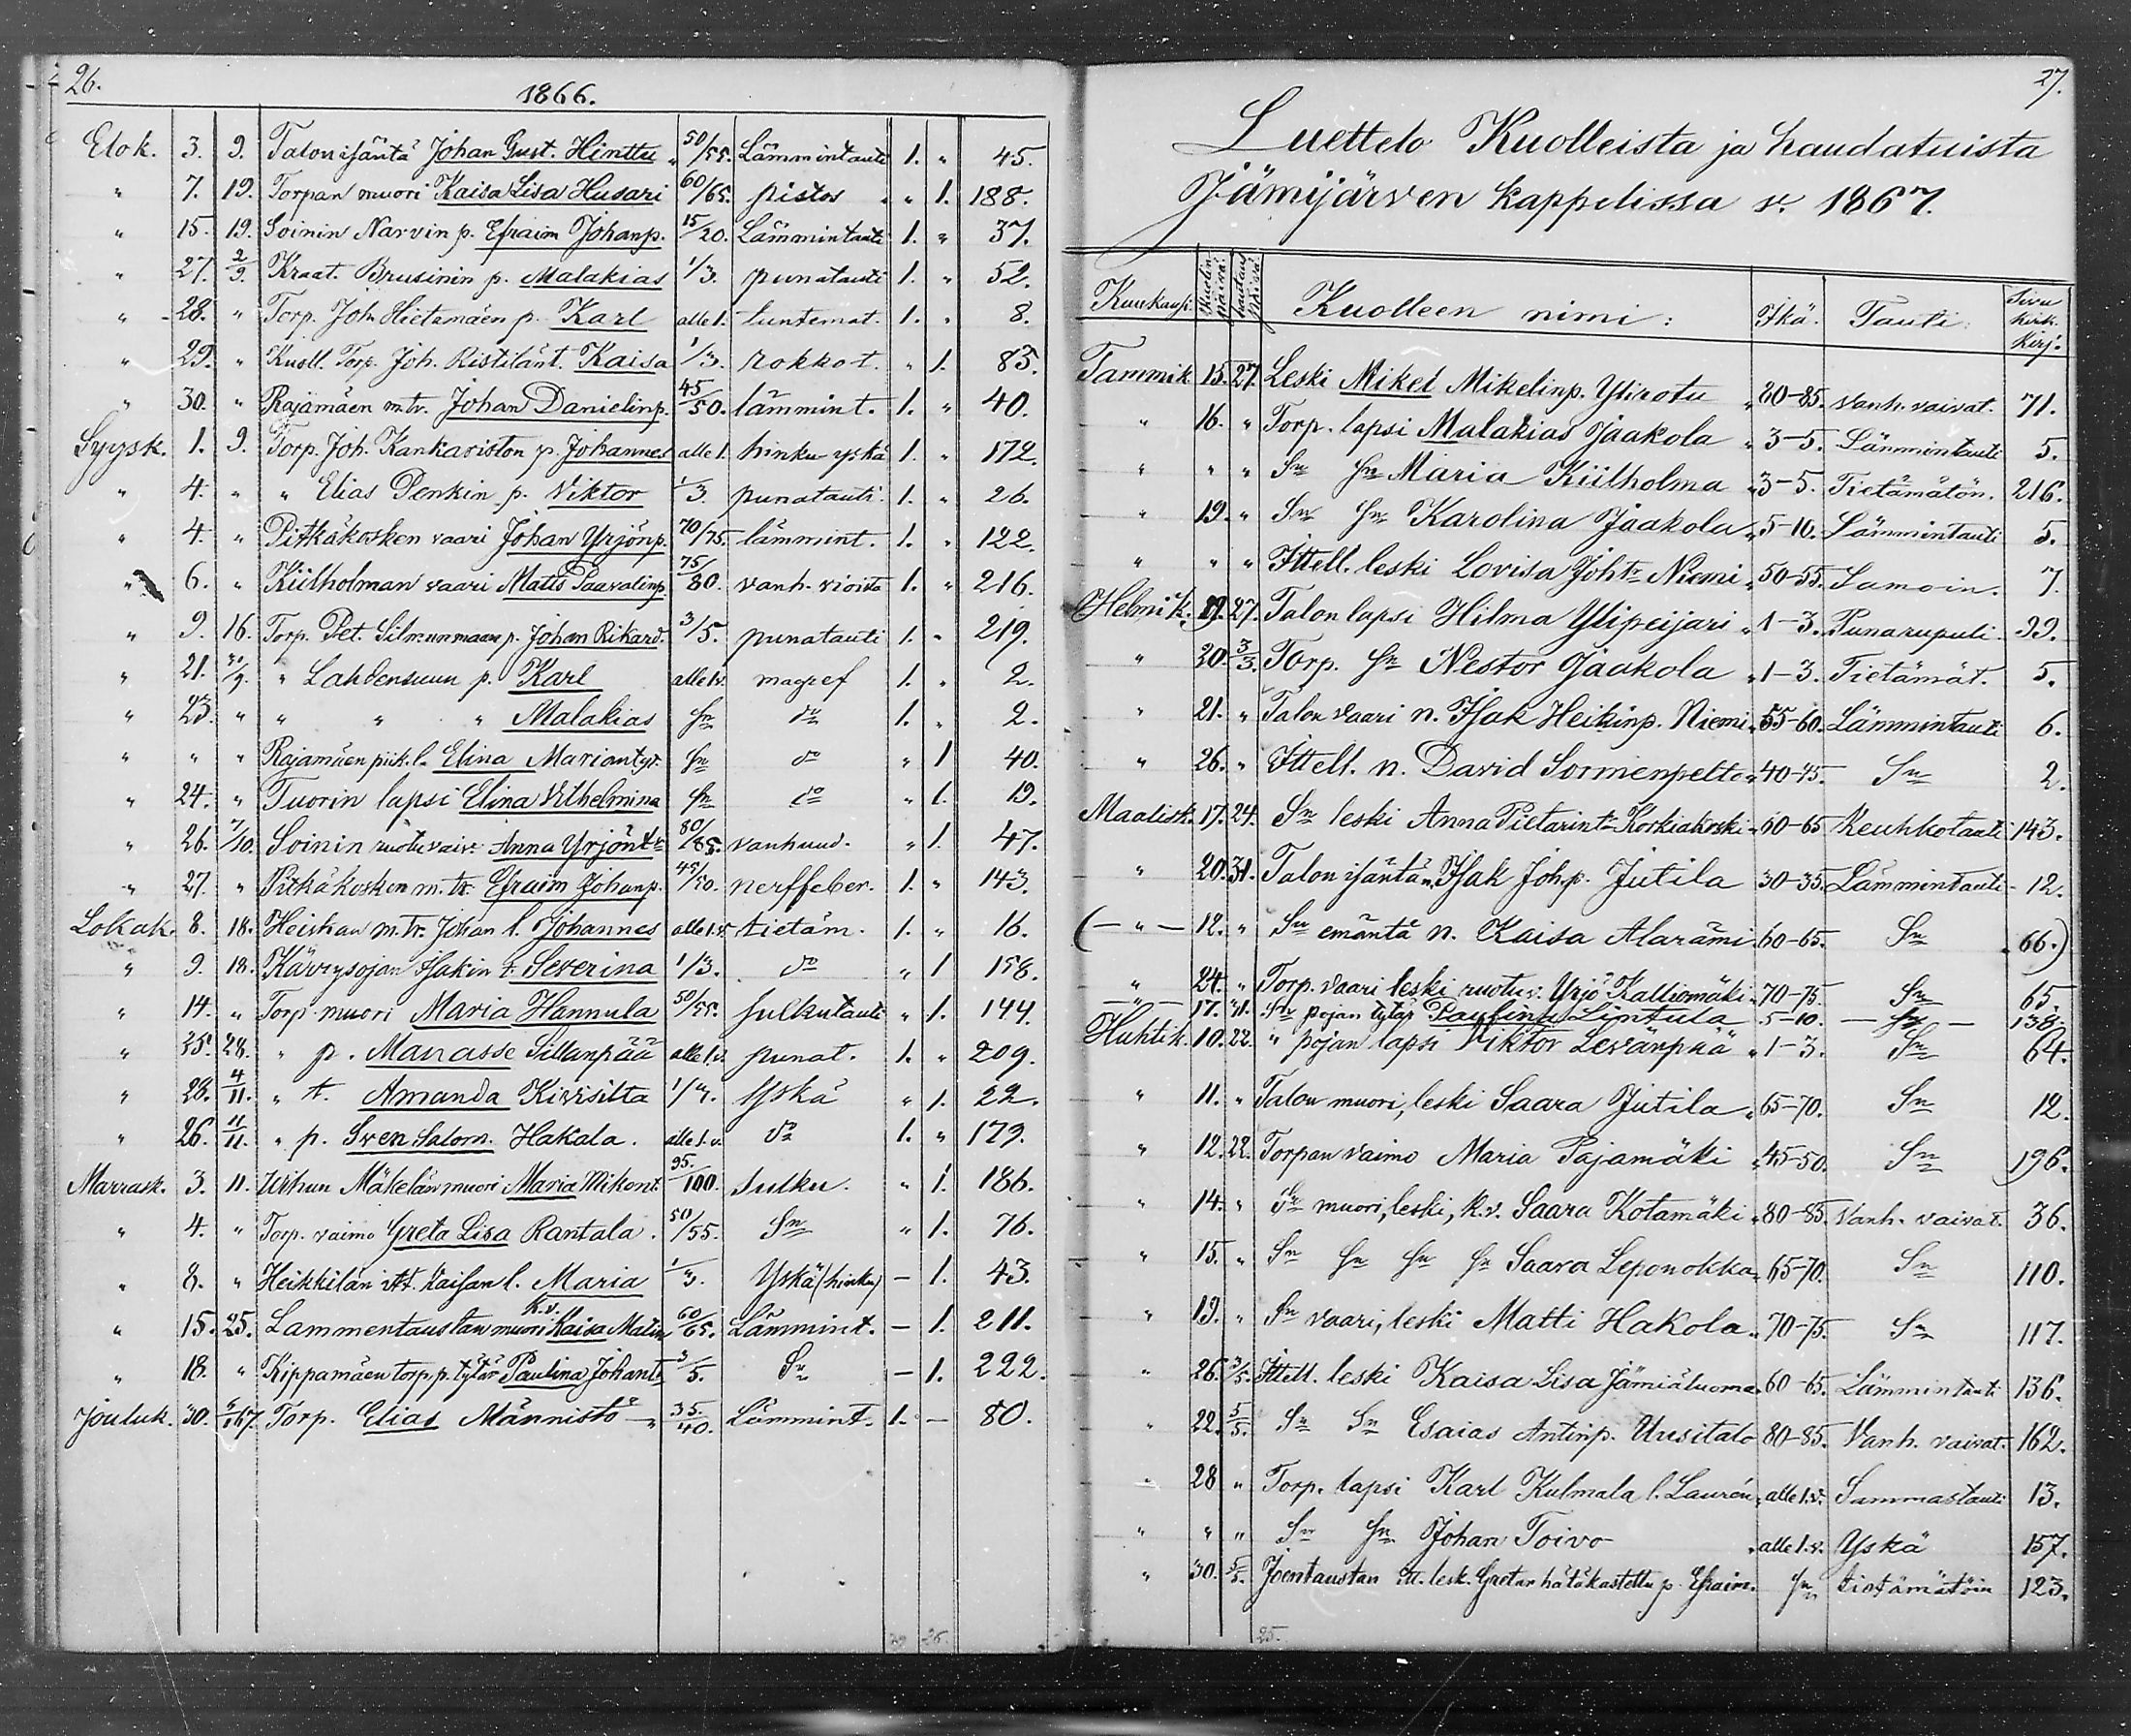 26.
1866.
Elok. 3. 9. Talon isäntä Johan Gust. Hinttu 50/55. Lämmintauti 1. " 45.
" 7. 19. Torpan muori Kaisa Lisa Husari 60/65. pistos " 1. 188.
" 15. 19. Soinin Narvin p. Efraim Johanp. 15/20. Lämmintauti 1. " 37.
" 27. 2/9. Kraat. Brusinin p. Malakias 1/3. punatauti 1. " 52.
" 28. " Torp. Joh. Hietamäen p. Karl alle 1. tuntemat. 1. " 8.
" 29. " Kuoll. Torp. Joh. Ristilän t. Kaisa 1/3. rokko t. " 1. 83.
" 30. " Rajamäen m.tr. Johan Danielinp. 45/50. lämmint. 1. " 40.
Syysk. 1. 9. Torp. Joh. Kankariston p. Johannes alle 1. hinku yskä 1. " 172.
" 4. " " Elias Penkin p. Viktor 1/3. punatauti 1. " 26.
" 4. " Pitkäkosken vaari Johan Yrjönp. 70/75. lämmint. 1. " 122.
" 6. " Kiilholman vaari Matts Paavalinp. 75/80. vanh. vioista 1. " 216.
" 9. 16. Torp. Pet. Silmunmaan p. Johan Rikard. 3/5. punatauti 1. " 219.
" 21. 30/9. " Lahdensuun p. Karl alle 1v. magref 1. " 2.
" 23. " " " " Malakias Sn do 1. " 2.
" " " Rajamäen piik. l. Elina Mariantyt. Sn do " 1 40.
" 24. " Tuorin lapsi Elina Vilhelmina Sn do " 1. 19.
" 26. 7/10. Soinin ruotuvaiv. Anna Yrjöntr 80/85. vanhuud. " 1. 47.
" 27. " Pitkäkosken m. tr. Efraim Johanp. 45/50. nerffeber. 1. " 143.
Lokak. 8. 18. Heiskan m.tr. Johan l. Johannes alle 1.v. tietäm. 1. " 16.
" 9. 18. Käzrysojan Isakin t. Severina 1/3. do " 1 158.
" 14. " Torp. muori Maria Hannula 50/55. sulkutauti " 1. 144.
" 25. 28. " p. Manasse Sillanpää alle 1.v. punat. 1. " 209.
" 28. 4/11. " t. Amanda Kivisilta 1/3. Yskä " 1. 22.
" 26. 11/11. " p. Sven Salom. Hakala. alle 1.v. do 1. " 179.
Marrask. 3. 11. Uihun Mäkelän muori Maria Mikont. 95/100. Sulku. " 1. 186.
" 4. " Torp. vaimo Greta Lisa Rantala. 50/55. Sn " 1. 76.
" 8. " Heikkilän itt. Kaisan l. Maria 1/3. Yskä (hinku) – 1. 43.
" 15. 25. Lammentaustan muori k.v. Kaisa Matin 60/65. Lämmint. – 1. 211.
" 18. " Kippamäen torp. p. tytär Paulina Johant. 3/5. Sn – 1. 222.
Jouluk. 30. 6/1 67. Torp. Elias Männistö " 35/40. Lämmint. 1. – 80.
27.
Luettelo Kuolleista ja haudatuista
Jämijärven kappelissa v. 1867.
Kuukausi. Kuolin päivä. hautaus päivä. Kuolleen nimi: Ikä. Tauti: Sivu kirk. kirj.
Tammik. 15. 27. Leski Mikel Mikelinp. Ylirotu 80-85. vanh. vaivat. 71.
" 16. " Torp. lapsi Malakias Jaakola 3-5. Lämmintauti 5.
" " " Sn Sn Maria Kiilholma 3-5. Tietämätön. 216.
" 19. " Sn Sn Karolina Jaakola 5-10. Lämmintauti 5.
" " " Ittell. leski Lovisa Johtr Niemi 50-55. Samoin. 7.
Helmik. 19. 27. Talon lapsi Hilma Ylipeijari 1-3. Punarupuli 99.
" 20. 3/3. Torp. Sn Nestor Jaakola 1-3. Tietämät. 5.
" 21. " Talon vaari n. Isak Heikinp. Niemi 55-60. Lämmintauti 6.
" 26. " Ittell. n. David Sormenpelto 40-45. Sn 2.
Maalisk. 17. 24. Sn leski Anna Pietarintr Koskiakoski 60-65 Keuhkotauti 143.
" 20. 31. Talon isäntä n. Isak Joh.p. Jutila 30-35. Lämmintauti 12.
(– " – 12. " Sn emäntä n. Kaisa Alarämi 60-65. Sn 66.)
" 24. " Torp. vaari leski ruotuv. Yrjö Kalliomäki 70-75. Sn 65.
– " – 17. 31. Sn pojan tytär Paulina Lintula 5-10. – Sn – 138.
Huhtik. 10. 22. " pojan lapsi Viktor Levänpää 1-3. Sn 64.
" 11. " Talon muori, leski Saara Jutila 65-70. Sn 12.
" 12. 22. Torpan vaimo Maria Pajamäki 45-50. Sn 196.
" 14. " Sn muori, leski, k.v. Saara Kotamäki 80-85. Vanh. vaivat. 36.
" 15. " Sn Sn Sn Sn Saara Leponokka 65-70. Sn 110.
" 19. " Sn vaari, leski Matti Hakola 70-75. Sn 117.
" 26. 3/5. Ittell. leski Kaisa Lisa Jämiäluoma 60-65. Lämmintauti 136.
" 22. 5/5. Sn Sn Esaias Antinp. Uusitalo 80-85. Vanh. vaivat. 162.
" 28 " Torp. lapsi Karl Kulmala l. Laurén alle 1.v. Sammastauti 13.
" " " Sn Sn Johan Toivo alle 1.v. Yskä 157.
" 30. 5/5. Joentaustan itt. lesk. Gretan hätäkastettu p. Efraim. Sn tietämätöin 123.
25.